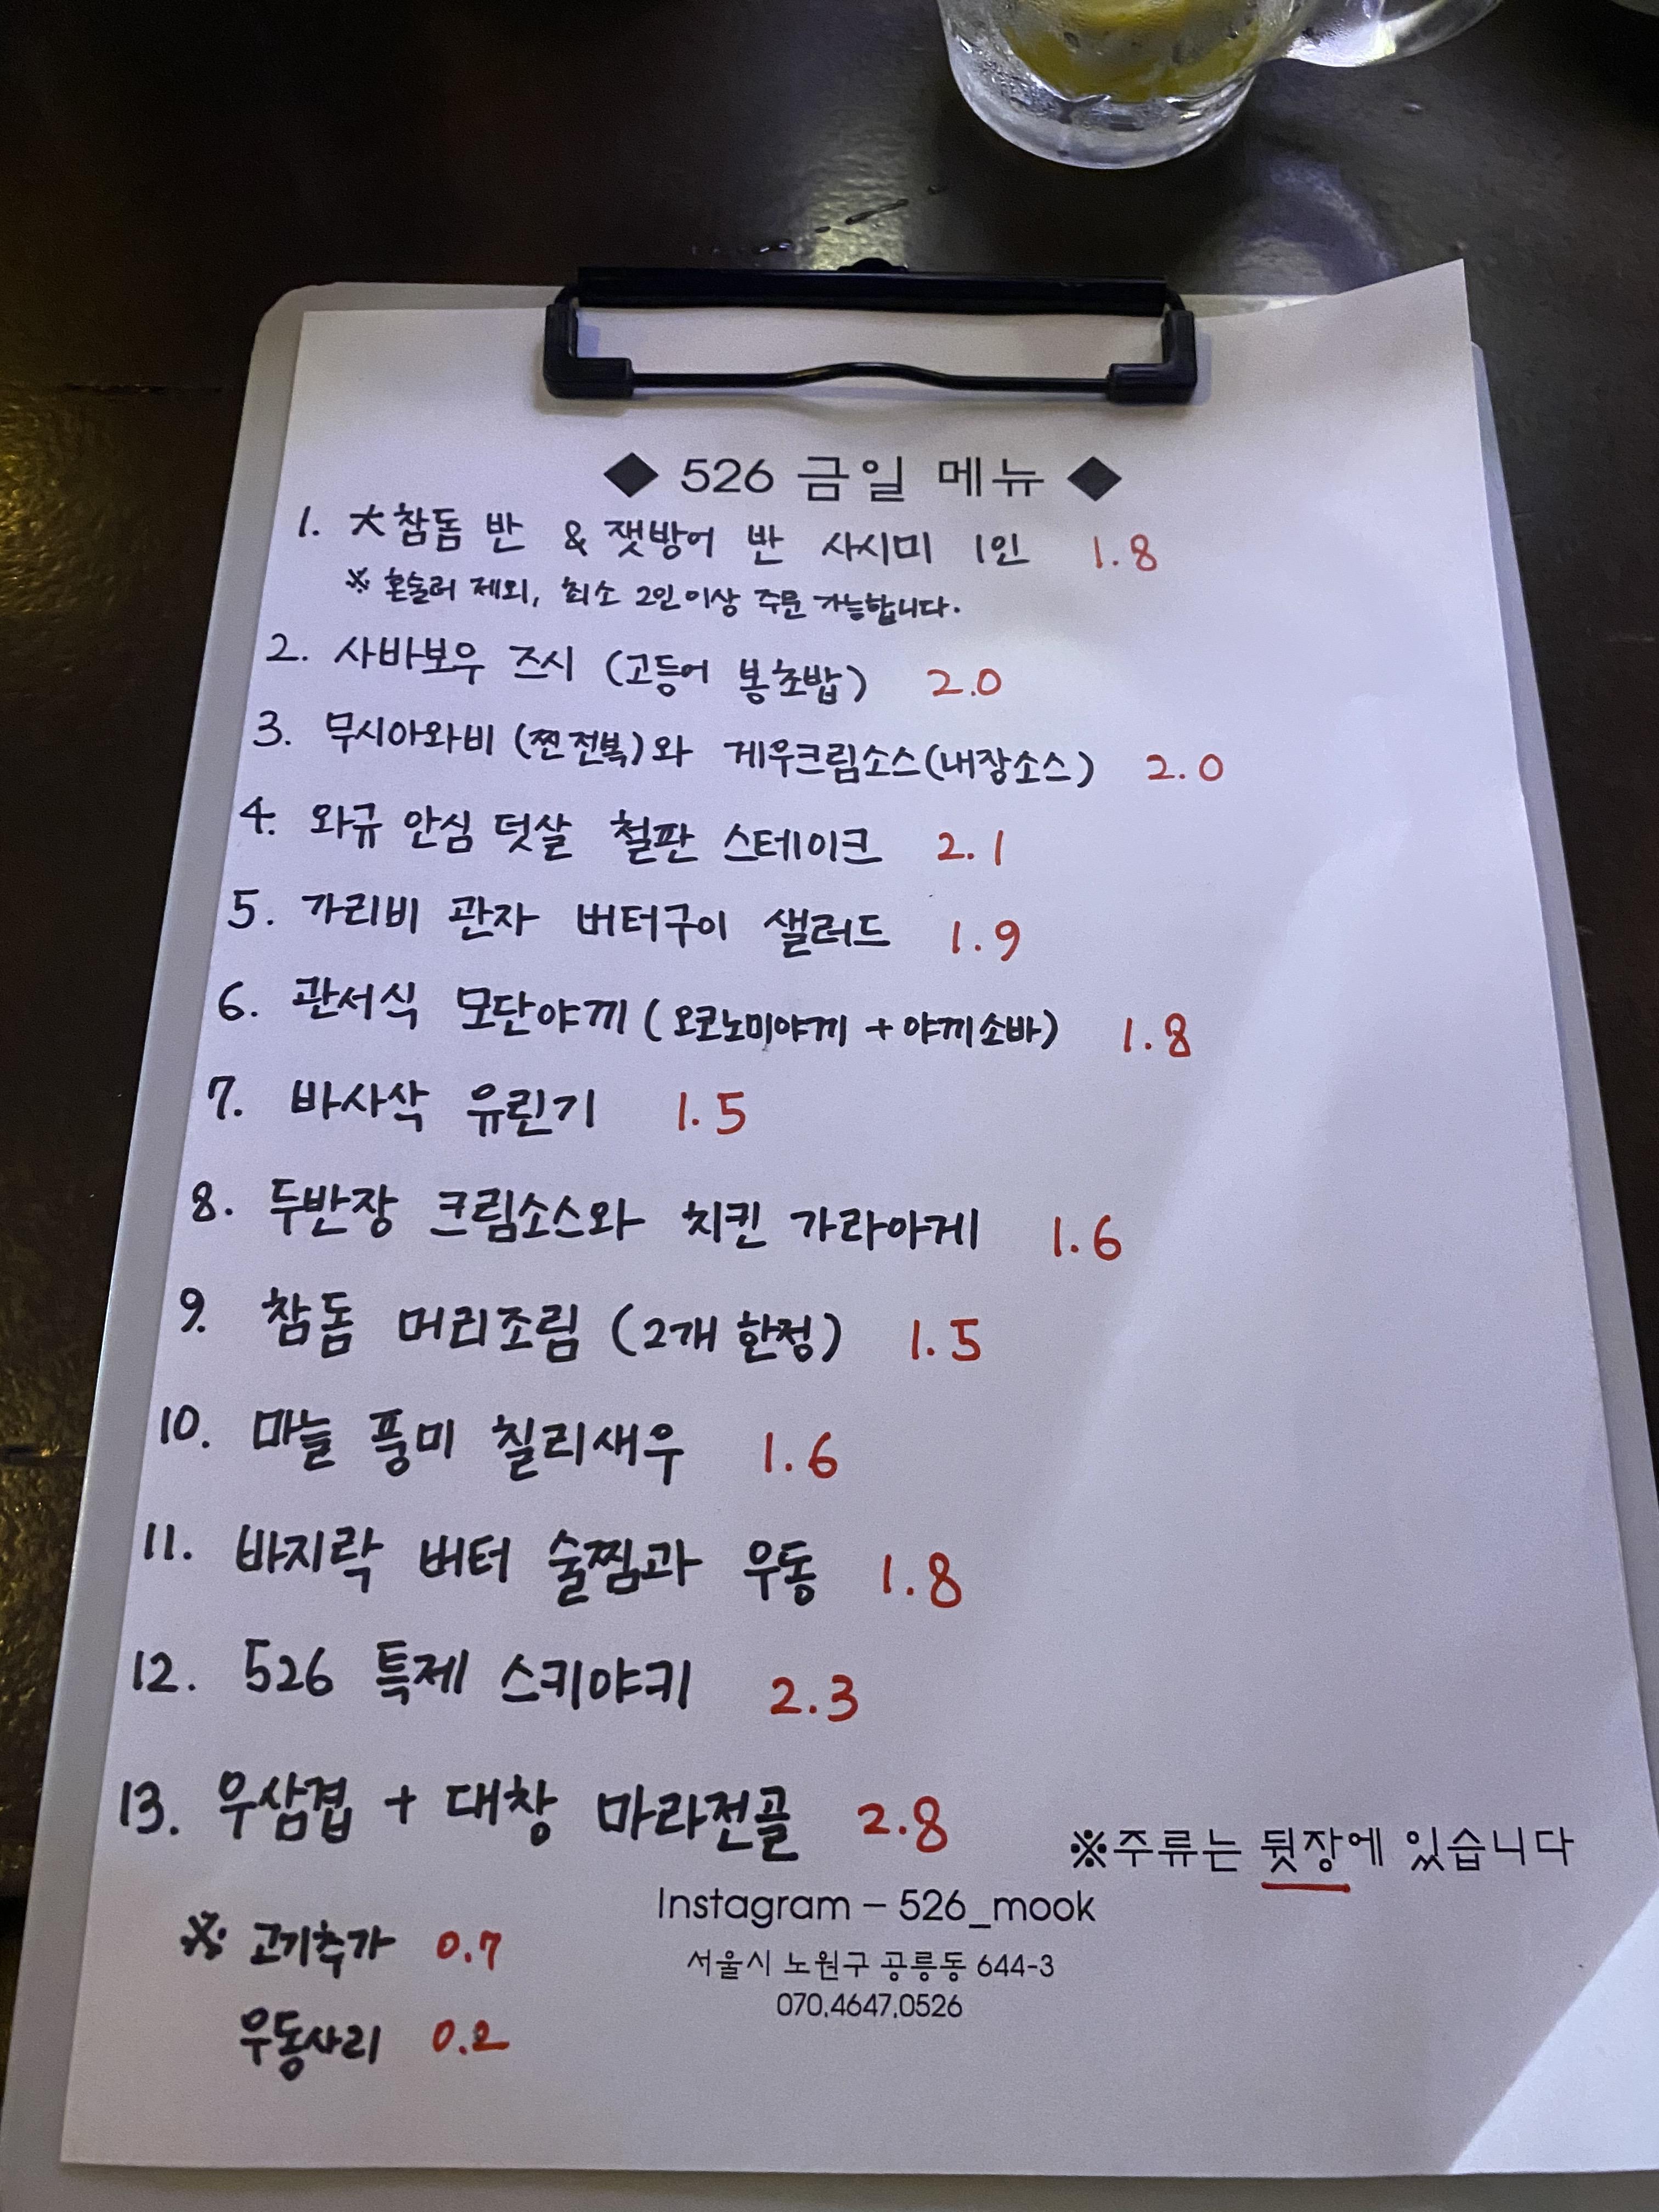 ◆ 526 금일 메뉴 ◆
1. 大참돔 반 & 잿방어 반 사시미 1인 1.8
※ 혼술러 제외, 최소 2인이상 주문 가능합니다.
2. 사바보우 즈시 (고등어 봉초밥) 2.0
3. 무시아와비 (찐전복)와 게우크림소스(내장소스) 2.0
4. 와규 안심 덧살 철판 스테이크 2.1
5. 가리비 관자 버터구이 샐러드 1.9
6. 관서식 모단야끼 (오코노미야끼 + 야끼소바) 1.8
7. 바사삭 유린기 1.5
8. 두반장 크림소스와 치킨 가라아게 1.6
9. 참돔 머리조림 (2개 한정) 1.5
10. 마늘 풍미 칠리새우 1.6
11. 바지락 버터 술찜과 우동 1.8
12. 526 특제 스키야키 2.3
13. 우삼겹 + 대창 마라전골 2.8
※주류는 뒷장에 있습니다
※ 고기추가 0.7
우동사리 0.2
Instagram – 526_mook
서울시 노원구 공릉동 644-3
070.4647.0526